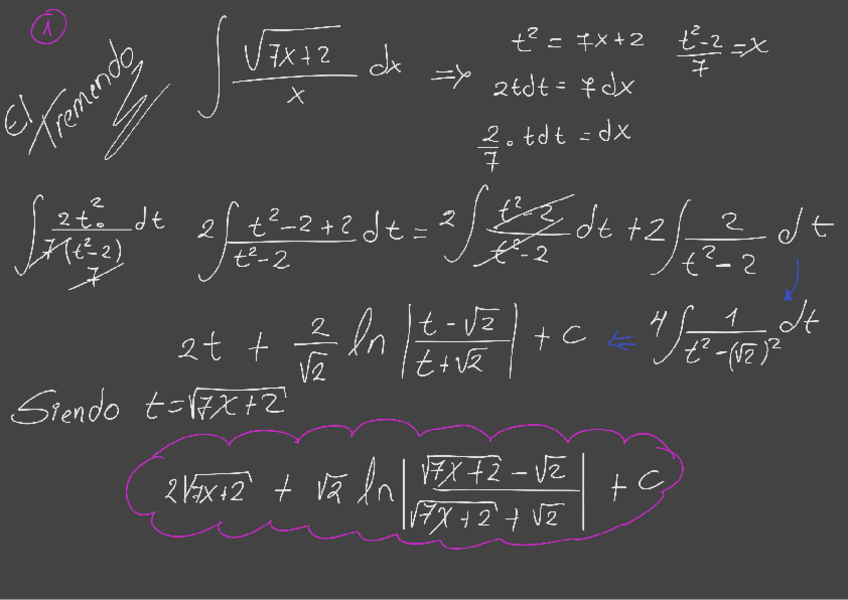 ①
El Tremendo
∫ √(7x+2)/x dx ⇒ t² = 7x+2 (t²-2)/7 = x
2tdt = 7dx
2/7 · tdt = dx
∫ 2t²·/(7(t²-2)/7) dt 2∫ (t²-2+2)/(t²-2) dt = 2∫ (t²-2)/(t²-2) dt + 2∫ 2/(t²-2) dt
2t + 2/√2 ln |(t-√2)/(t+√2)| + C ⇐ 4∫ 1/(t²-(√2)²) dt
Siendo t=√(7x+2)
2√(7x+2) + √2 ln |(√(7x+2) - √2)/(√(7x+2) + √2)| + C